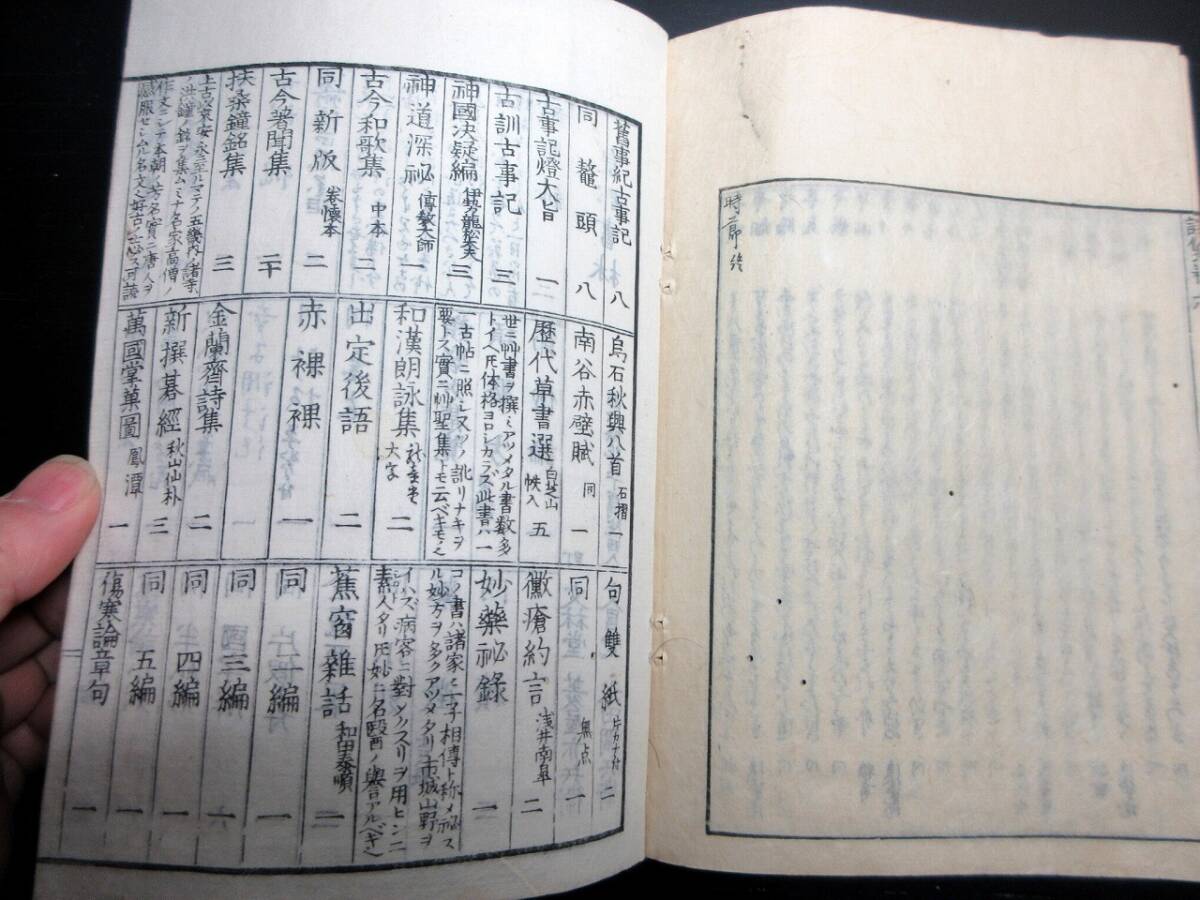 時節終
舊事紀古事記 八
同 鼇頭 八
古事記燈大旨 二
古訓古事記 三
神國决疑編 伊勢龍凞近 三
神道深祕 傳教大師 一
古今和歌集 中本 二
同新版 卷懷本 二
古今著聞集 二十
扶桑鐘銘集 三
上古ヨリ安永ニ至ルマテノ五畿内ノ諸寺
ノ洪鐘ノ銘ヲ集ム
烏石秋興八首 石摺 一
南谷赤壁賦 同 一
歷代草書選 白芝山 帙入 五
世ニ艸書ヲ撰ミアツメタル書數多
トイヘ𪜈体格ヨロシカラズ此書ハ一
一古帖ニ照シ又ソノ訛リナキヲ
要トス實ニ艸聖集トモ云ベキモノ也
和漢朗詠集 大字 二
出定後語 二
赤裸裸 一
金蘭齊詩集 二
新撰碁經 秋山仙朴 三
萬國掌菓圖 鳳潭 一
句雙紙 片カナ付 二
同 無点 一
黴瘡約言 淺井南皐 二
妙藥祕錄 一
コノ書ハ諸家ニ一子相傳ト称メ祕ス
ル妙方ヲ多クアツメタリ市城山野ヲ
イハズ病容ニ對シクスリヲ用ヒンニ
素人タリ𪜈妙ニ名醫ノ輿言アルベキ也
蕉窗雜話 和田泰順 一
同 二編 一
同 三編 一
同 四編 一
同 五編 一
傷寒論章句 一